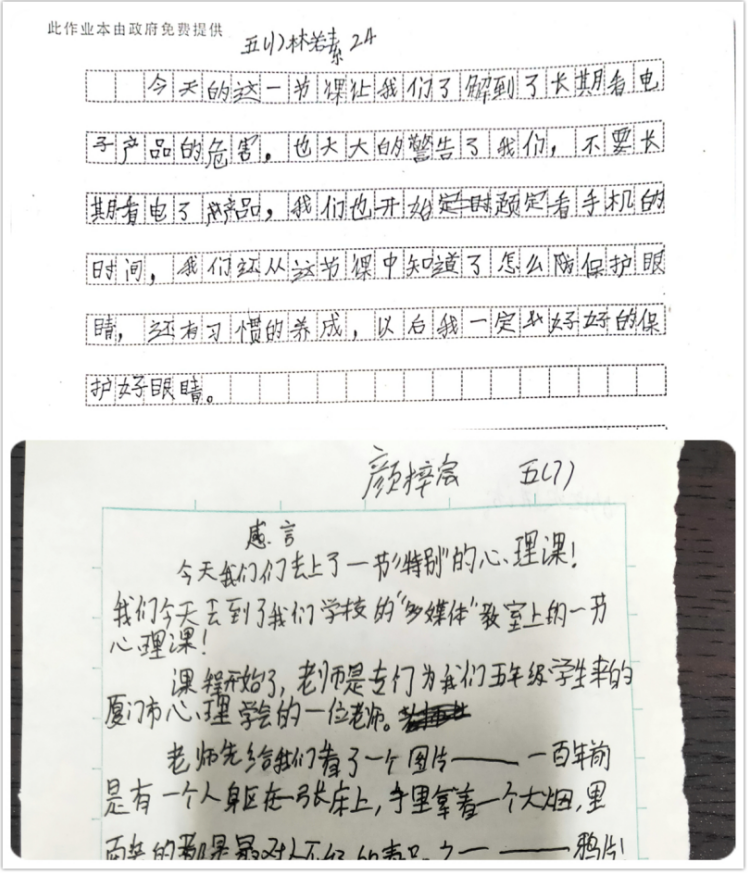 此作业本由政府免费提供
五(1)林若素 24
今天的这一节课让我们了解到了长期看电
子产品的危害，也大大的警告了我们，不要长
期看电子产品，我们也开始定时预定看手机的
时间，我们还从这节课中知道了怎么保护眼
睛，还有习惯的养成，以后我一定好好的保
护好眼睛。
颜梓 五(7)
感言
今天我们们去上了一节“特别”的心理课！
我们今天去到了我们学校的“多媒体”教室上的一节
心理课！
课程开始了，老师是专门为我们五年级学生来的
厦门市心理学会的一位老师。
老师先给我们看了一个图片——一百年前
是有一个人身区在一张床上，手里拿着一个大烟，里
——鸦片！